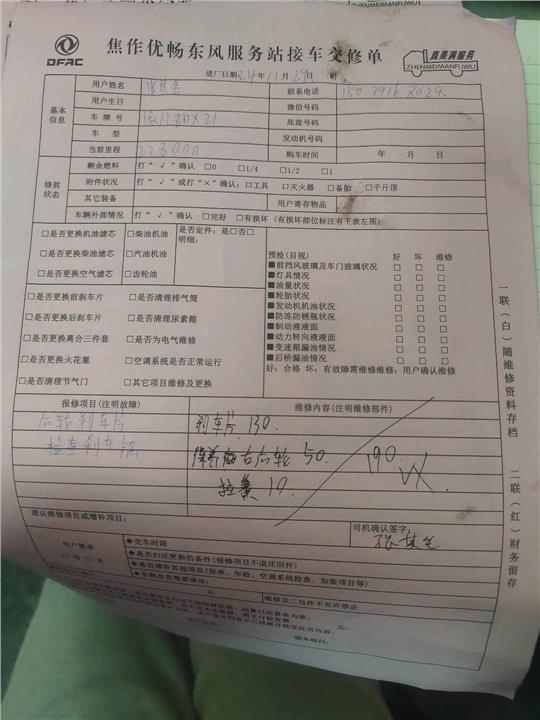 DFAC
焦作优畅东风服务站接车交修单
真美满服务
ZHENMEIMANFUWU
进厂日期24年11月29日 时
基本信息
用户姓名
联系电话
用户生日
微信号码
车牌号
底盘号码
车型
发动机号码
当前里程 228000
购车时间 年 月 日
修前状态
剩余燃料 打“√”确认 □0 □1/4 □1/2 □1
附件状况 打“√”或打“×”确认:□工具 □灭火器 □备胎 □千斤顶
其它装备
用户寄存物品
车辆外部情况 打“√”确认 □完好 □有损坏(有损坏部位标注有下表左图)
□是否更换机油滤芯 □柴油机油
□是否更换柴油滤芯 □汽油机油
□是否更换空气滤芯 □齿轮油
是否定件:是□否□
明细:
□是否更换前刹车片 □是否清理排气筒
□是否更换后刹车片 □是否清理尿素箱
□是否更换离合三件套 □是否为电气维修
□是否更换火花塞 □空调系统是否正常运行
□是否清理节气门 □其它项目维修及更换
预检(目视) 好 坏 维修
■前挡风玻璃及车门玻璃状况 □ □ □
■灯具情况 □ □ □
■油量状况 □ □ □
■轮胎状况 □ □ □
■发动机机油状况 □ □ □
■防冻防锈瓶状况 □ □ □
■制动液液面 □ □ □
■动力转向液液面 □ □ □
■变速箱漏油情况 □ □ □
■后桥漏油情况 □ □ □
好:合格 坏:有故障需维修维修:用户确认维修
报修项目(注明故障)
维修内容(注明维修部件)
后轮刹车片
刹车片 130.
检查刹车锅
右后轮 50.
190.
10.
建议维修项目或增补项目:
司机确认签字:
用户要求
□有 □无
◆交车时限
◆是否归还更换的备件(保修项目不退还旧件)
◆是否增补其他项目(保养、年检、空调系统检查、加装项目等)
◆车辆是否需要清洁:
元。
维修及三包件不允许带走
服务顾问:
一联(白)随维修资料存档
二联(红)财务留存